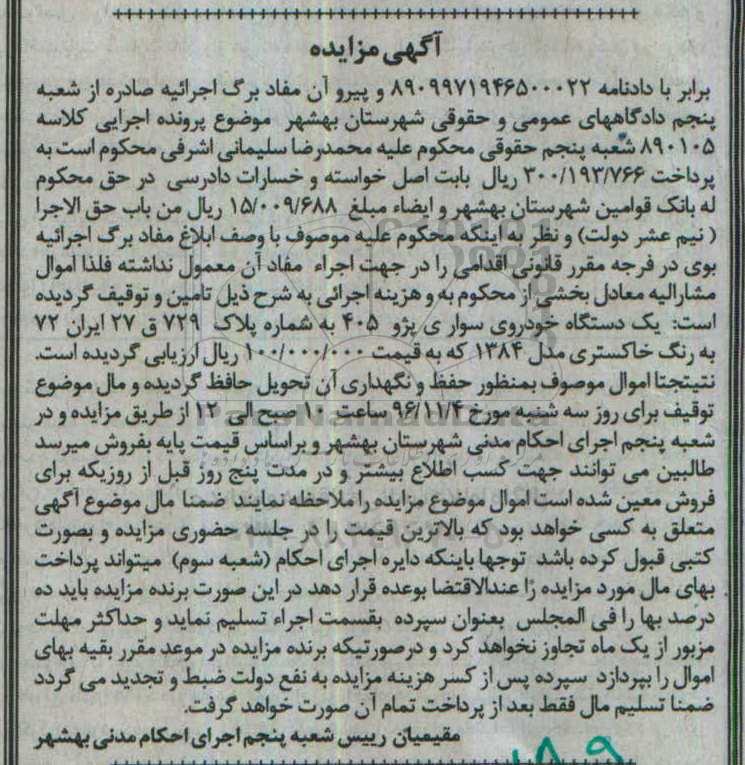 آگهی مزایده
برابر با دادنامه ۸۹۰۹۹۷۱۹۴۶۵۰۰۰۲۲ و پیرو آن مفاد برگ اجرائیه صادره از شعبه
پنجم دادگاههای عمومی و حقوقی شهرستان بهشهر موضوع پرونده اجرایی کلاسه
۸۹۰۱۰۵ شعبه پنجم حقوقی محکوم علیه محمدرضا سلیمانی اشرفی محکوم است به
پرداخت ۳۰۰/۱۹۳/۷۶۶ ریال بابت اصل خواسته و خسارات دادرسی در حق محکوم
له بانک قوامین شهرستان بهشهر و ایضاء مبلغ ۱۵/۰۰۹/۶۸۸ ریال من باب حق الاجرا
( نیم عشر دولت) و نظر به اینکه محکوم علیه موصوف با وصف ابلاغ مفاد برگ اجرائیه
بوی در فرجه مقرر قانونی اقدامی را در جهت اجراء مفاد آن معمول نداشته فلذا اموال
مشارالیه معادل بخشی از محکوم به و هزینه اجرائی به شرح ذیل تامین و توقیف گردیده
است: یک دستگاه خودروی سوار ی پژو ۴۰۵ به شماره پلاک ۷۲۹ ق ۲۷ ایران ۷۲
به رنگ خاکستری مدل ۱۳۸۴ که به قیمت ۱۰۰/۰۰۰/۰۰۰ ریال ارزیابی گردیده است.
نتیتجتا اموال موصوف بمنظور حفظ و نگهداری آن تحویل حافظ گردیده و مال موضوع
توقیف برای روز سه شنبه مورخ ۹۶/۱۱/۴ ساعت ۱۰ صبح الی ۱۲ از طریق مزایده و در
شعبه پنجم اجرای احکام مدنی شهرستان بهشهر و براساس قیمت پایه بفروش میرسد
طالبین می توانند جهت کسب اطلاع بیشتر و در مدت پنج روز قبل از روزیکه برای
فروش معین شده است اموال موضوع مزایده را ملاحظه نمایند ضمنا مال موضوع آگهی
متعلق به کسی خواهد بود که بالاترین قیمت را در جلسه حضوری مزایده و بصورت
کتبی قبول کرده باشد توجها باینکه دایره اجرای احکام (شعبه سوم) میتواند پرداخت
بهای مال مورد مزایده را عندالاقتضا بوعده قرار دهد در این صورت برنده مزایده باید ده
درصد بها را فی المجلس بعنوان سپرده بقسمت اجراء تسلیم نماید و حداکثر مهلت
مزبور از یک ماه تجاوز نخواهد کرد و درصورتیکه برنده مزایده در موعد مقرر بقیه بهای
اموال را بپردازد سپرده پس از کسر هزینه مزایده به نفع دولت ضبط و تجدید می گردد
ضمنا تسلیم مال فقط بعد از پرداخت تمام آن صورت خواهد گرفت.
مقیمیان رییس شعبه پنجم اجرای احکام مدنی بهشهر